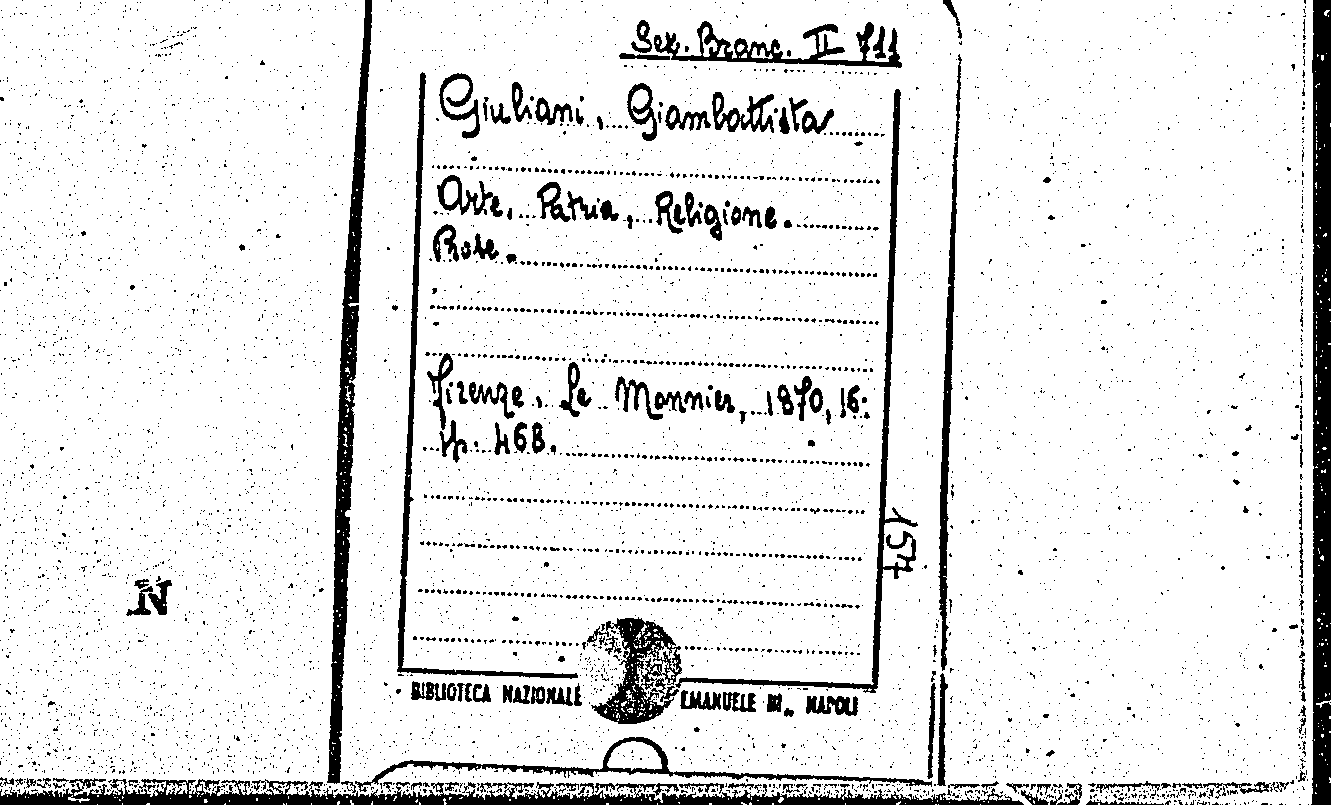 Sez. Branc. II 711
Giuliani, Giambattista
Arte, Patria, Religione.
Prose.
Firenze, Le Monnier, 1870, 16:
pp. 468.
154
N
BIBLIOTECA NAZIONALE EMANUELE III„ NAPOLI